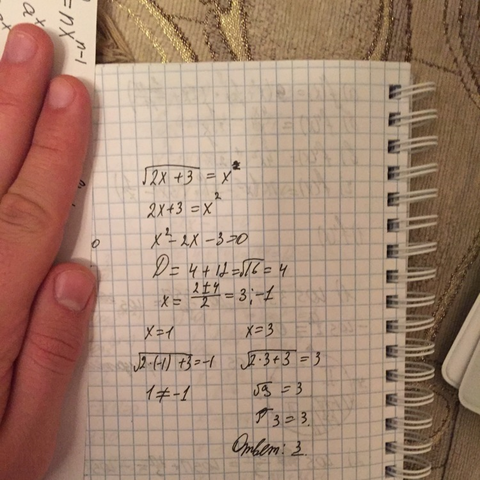 = nx^n-1
a^x
√2x+3 = x
2x+3 = x²
x²-2x-3=0
D = 4+12=√16 = 4
x = 2±4/2 = 3; -1
x=1 x=3
√2·(-1)+3=-1 √2·3+3 = 3
1≠-1 √9 = 3
3=3.
Ответ: 3